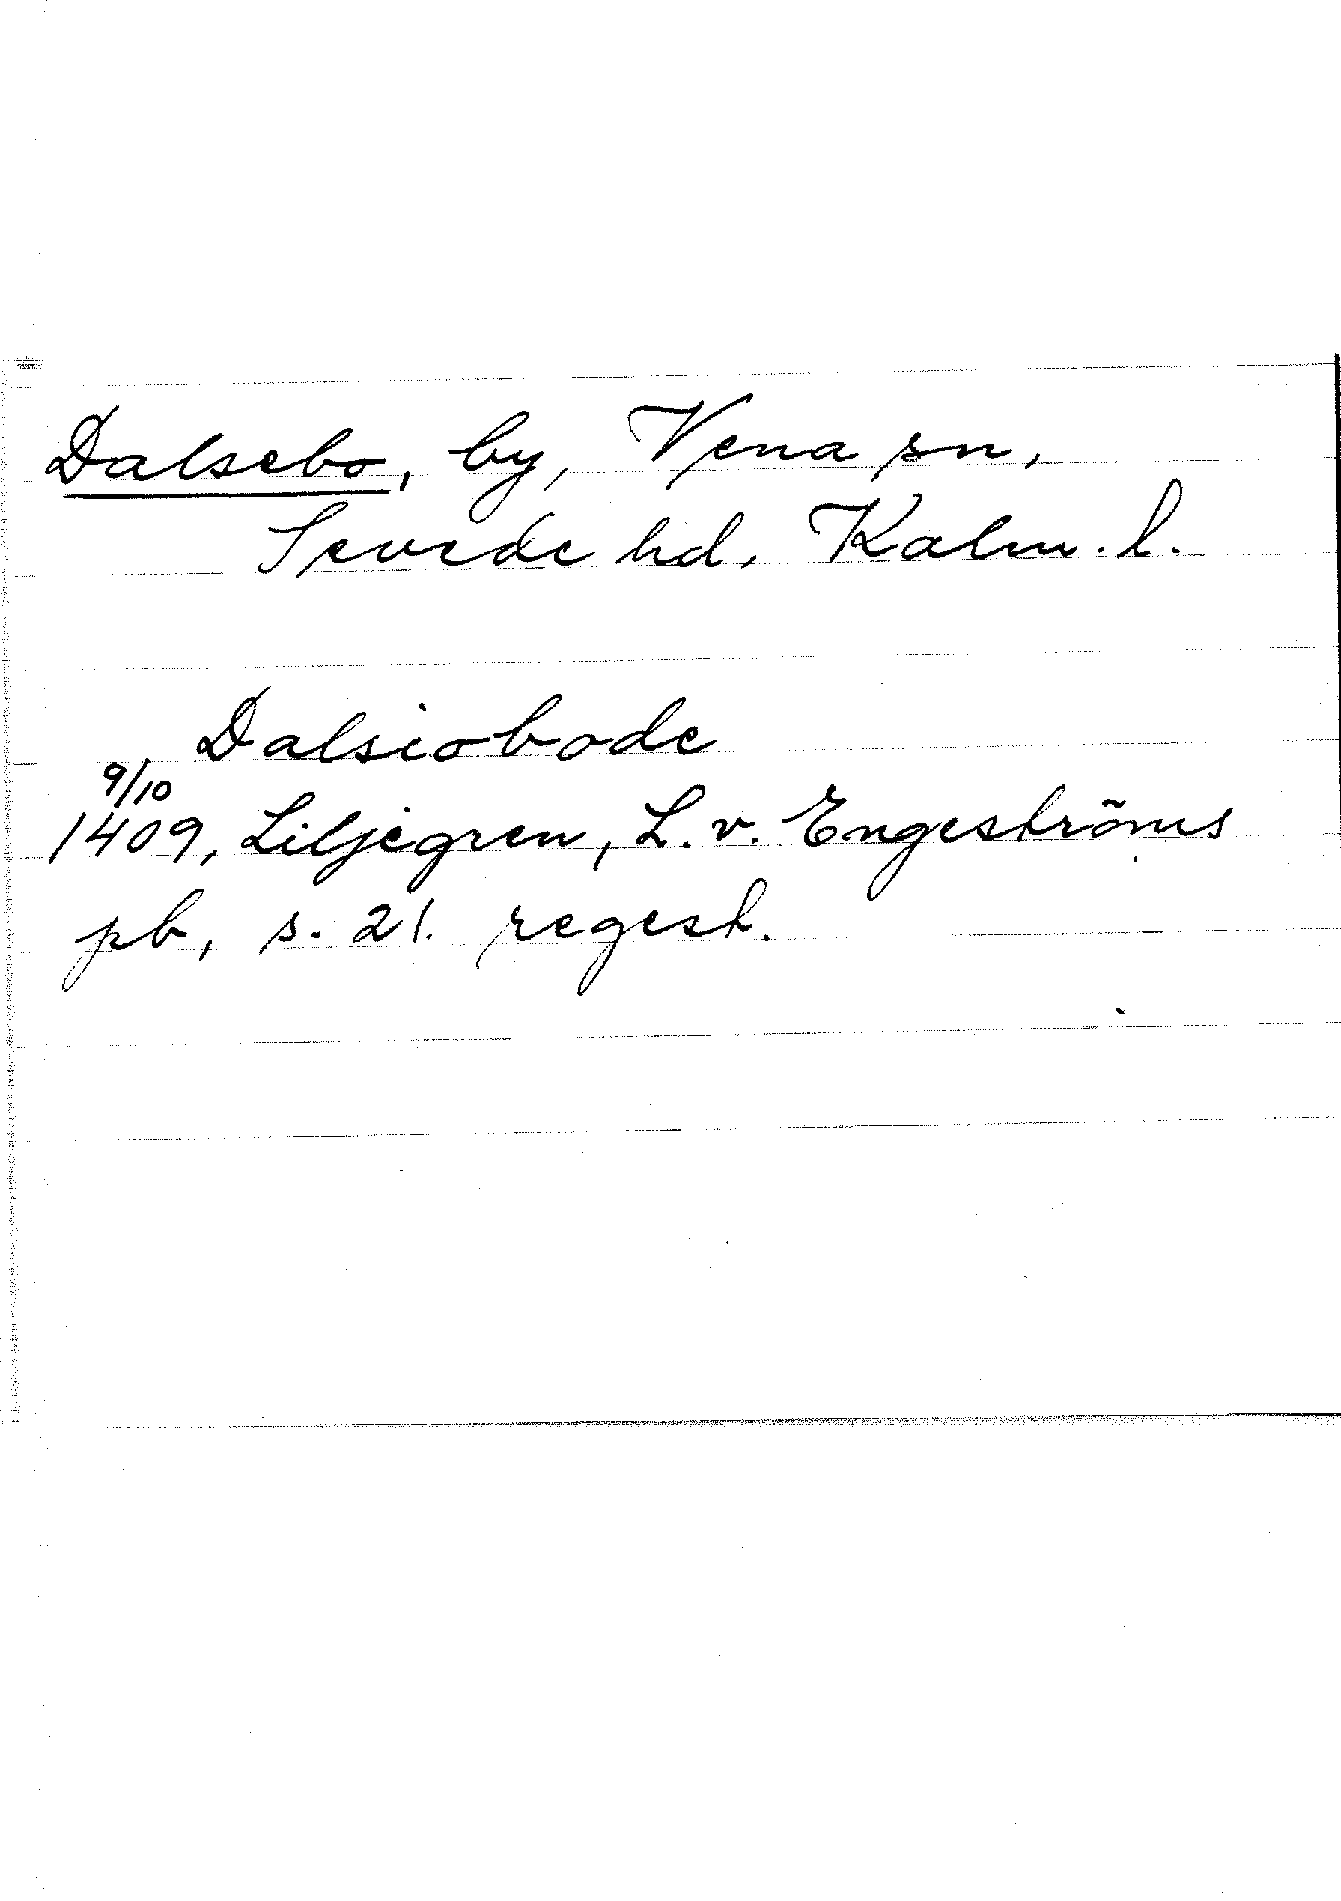 Dalsebo, by, Vena sn,
Sevede hd, Kalm. l.
Dalsiobode
9/10
1409, Liljegren, L. v. Engeströms
pb, s. 21. regest.